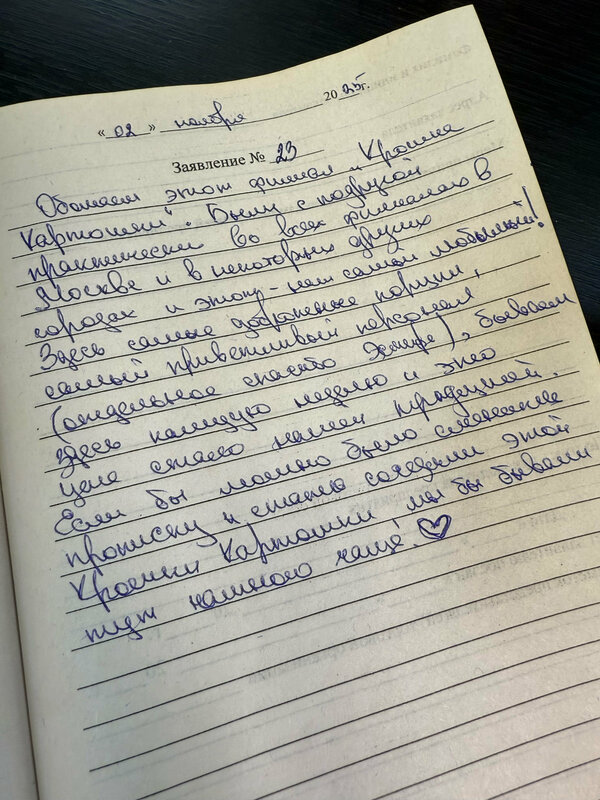 « 02 » ноября 2025г.
Заявление № 23
Обожаем этот филиал "Крошка
Картошки". Были с подругой
практически во всех филиалах в
Москве и в некоторых других
городах и этот - наш самый любимый!
Здесь самые добротные порции,
самый приветливый персонал
(отдельное спасибо), бываем
здесь каждую неделю и это
уже стало нашей традицией.
Если бы можно было
прописку и стать соседями этой
Крошки Картошки мы бы бывали
тут намного чаще. ♡